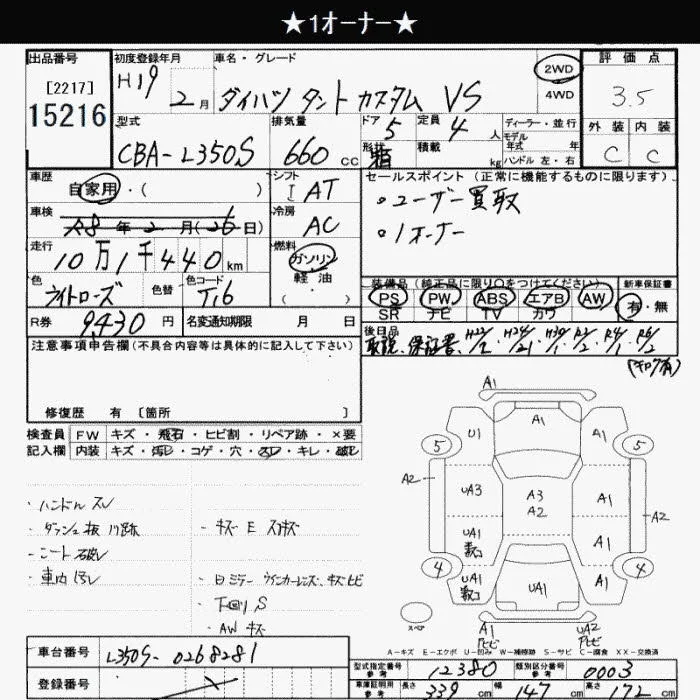 ★1オーナー★
出品番号 初度登録年月 車名・グレード 評価点
[2217]
15216
H19年 2月 ダイハツ タント カスタム VS 2WD 4WD 3.5
型式 排気量 ドア 5 定員 4人 ディーラー・並行 外装 内装
CBA-L350S 660cc 形状 箱 積載 kg モデル年式 年 ハンドル 左・右 C C
車歴 自家用・( ) シフト I AT セールスポイント (正常に機能するものに限ります)
車検 R8年2月(26日) 冷房 AC ・ユーザー買取
・1オーナー
走行 10万1千440km 燃料 ガソリン 軽油・( )
色 ライトローズ 色替 色コード T16
装備品(純正品に限り○をつけてください) 新車保証書
PS PW ABS エアB AW 有・無
SR ナビ TV カワ
R券 9,430円 名変通知期限 月 日
後日品 取説、保証書、
注意事項申告欄(不具合内容等は具体的に記入して下さい)
修復歴 有 〔箇所 〕
検査員 FW キズ・飛石・ヒビ割・リペア跡・×要
記入欄 内装 キズ・汚レ・コゲ・穴・スレ・キレ・破レ
・ハンドル スレ
・ダッシュ板
・シート 破レ
・車内 汚レ
・キズ E スリキズ
・日 ミラー ウインカーレンズ、キズヒビ
・下回り S
・AW キズ
A1
U1 A1 A1
5 5
A2 UA3 A3 A2 A1 A2
UA1 A1
4 UA1 UA1 A1 4
スペア A1 UA2
A-キズ E-エクボ U-凹み W-補修跡 S-サビ C-腐食 XX-交換済
車台番号 L350S-0268281
登録番号
型式指定番号 参考 12380 類別区分番号 参考 0003
車庫証明用 参考 長さ 339cm 幅 147cm 高さ 172cm